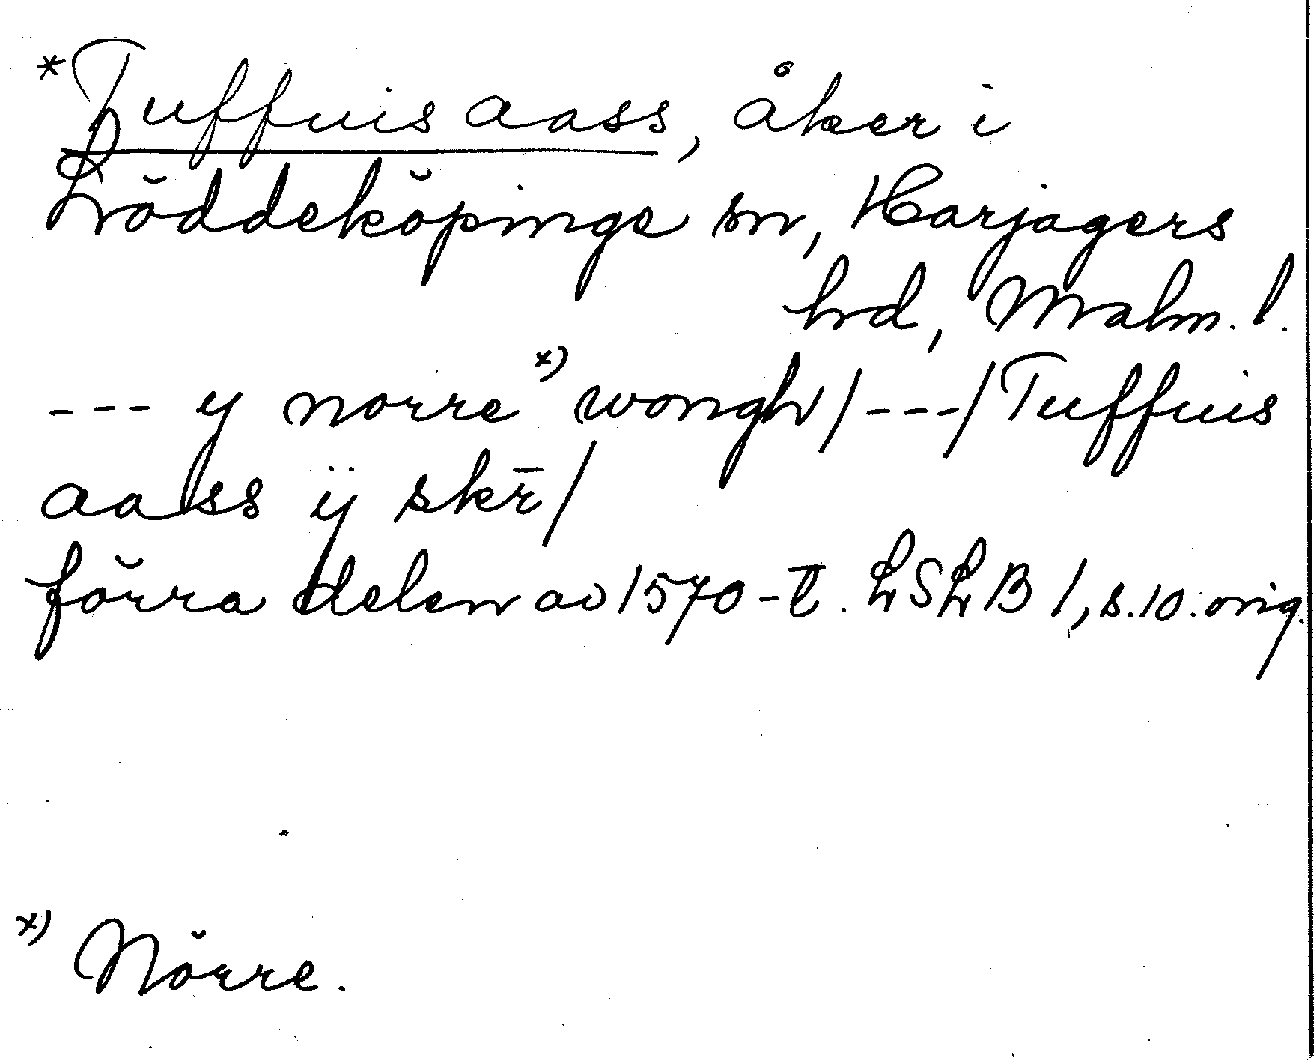 *Tuffuis aass, åker i
Löddeköpinge sn, Harjagers
hd, Malm. l.
--- y norre x) wongh/---/Tuffuis
aass ÿ skr̄/
förra delen av 1570-t. LSLB 1, s. 10. orig.
x) Nörre.